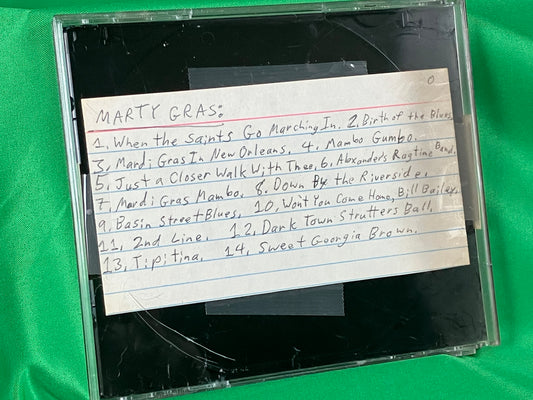 O
MARTY GRAS:
1, When the Saints Go Marching In. 2. Birth of the Blues
3, Mardi Gras In New Orleans, 4. Mambo Gumbo.
5, Just a Closer Walk With Thee, 6, Alexander's Ragtime Band.
7, Mardi Gras Mambo, 8. Down By the Riverside,
9, Basin Street Blues, 10, Won't You Come Home, Bill Bailey.
11, 2nd Line, 12, Dark Town Strutters Ball,
13, Tipitina, 14, Sweet Georgia Brown.